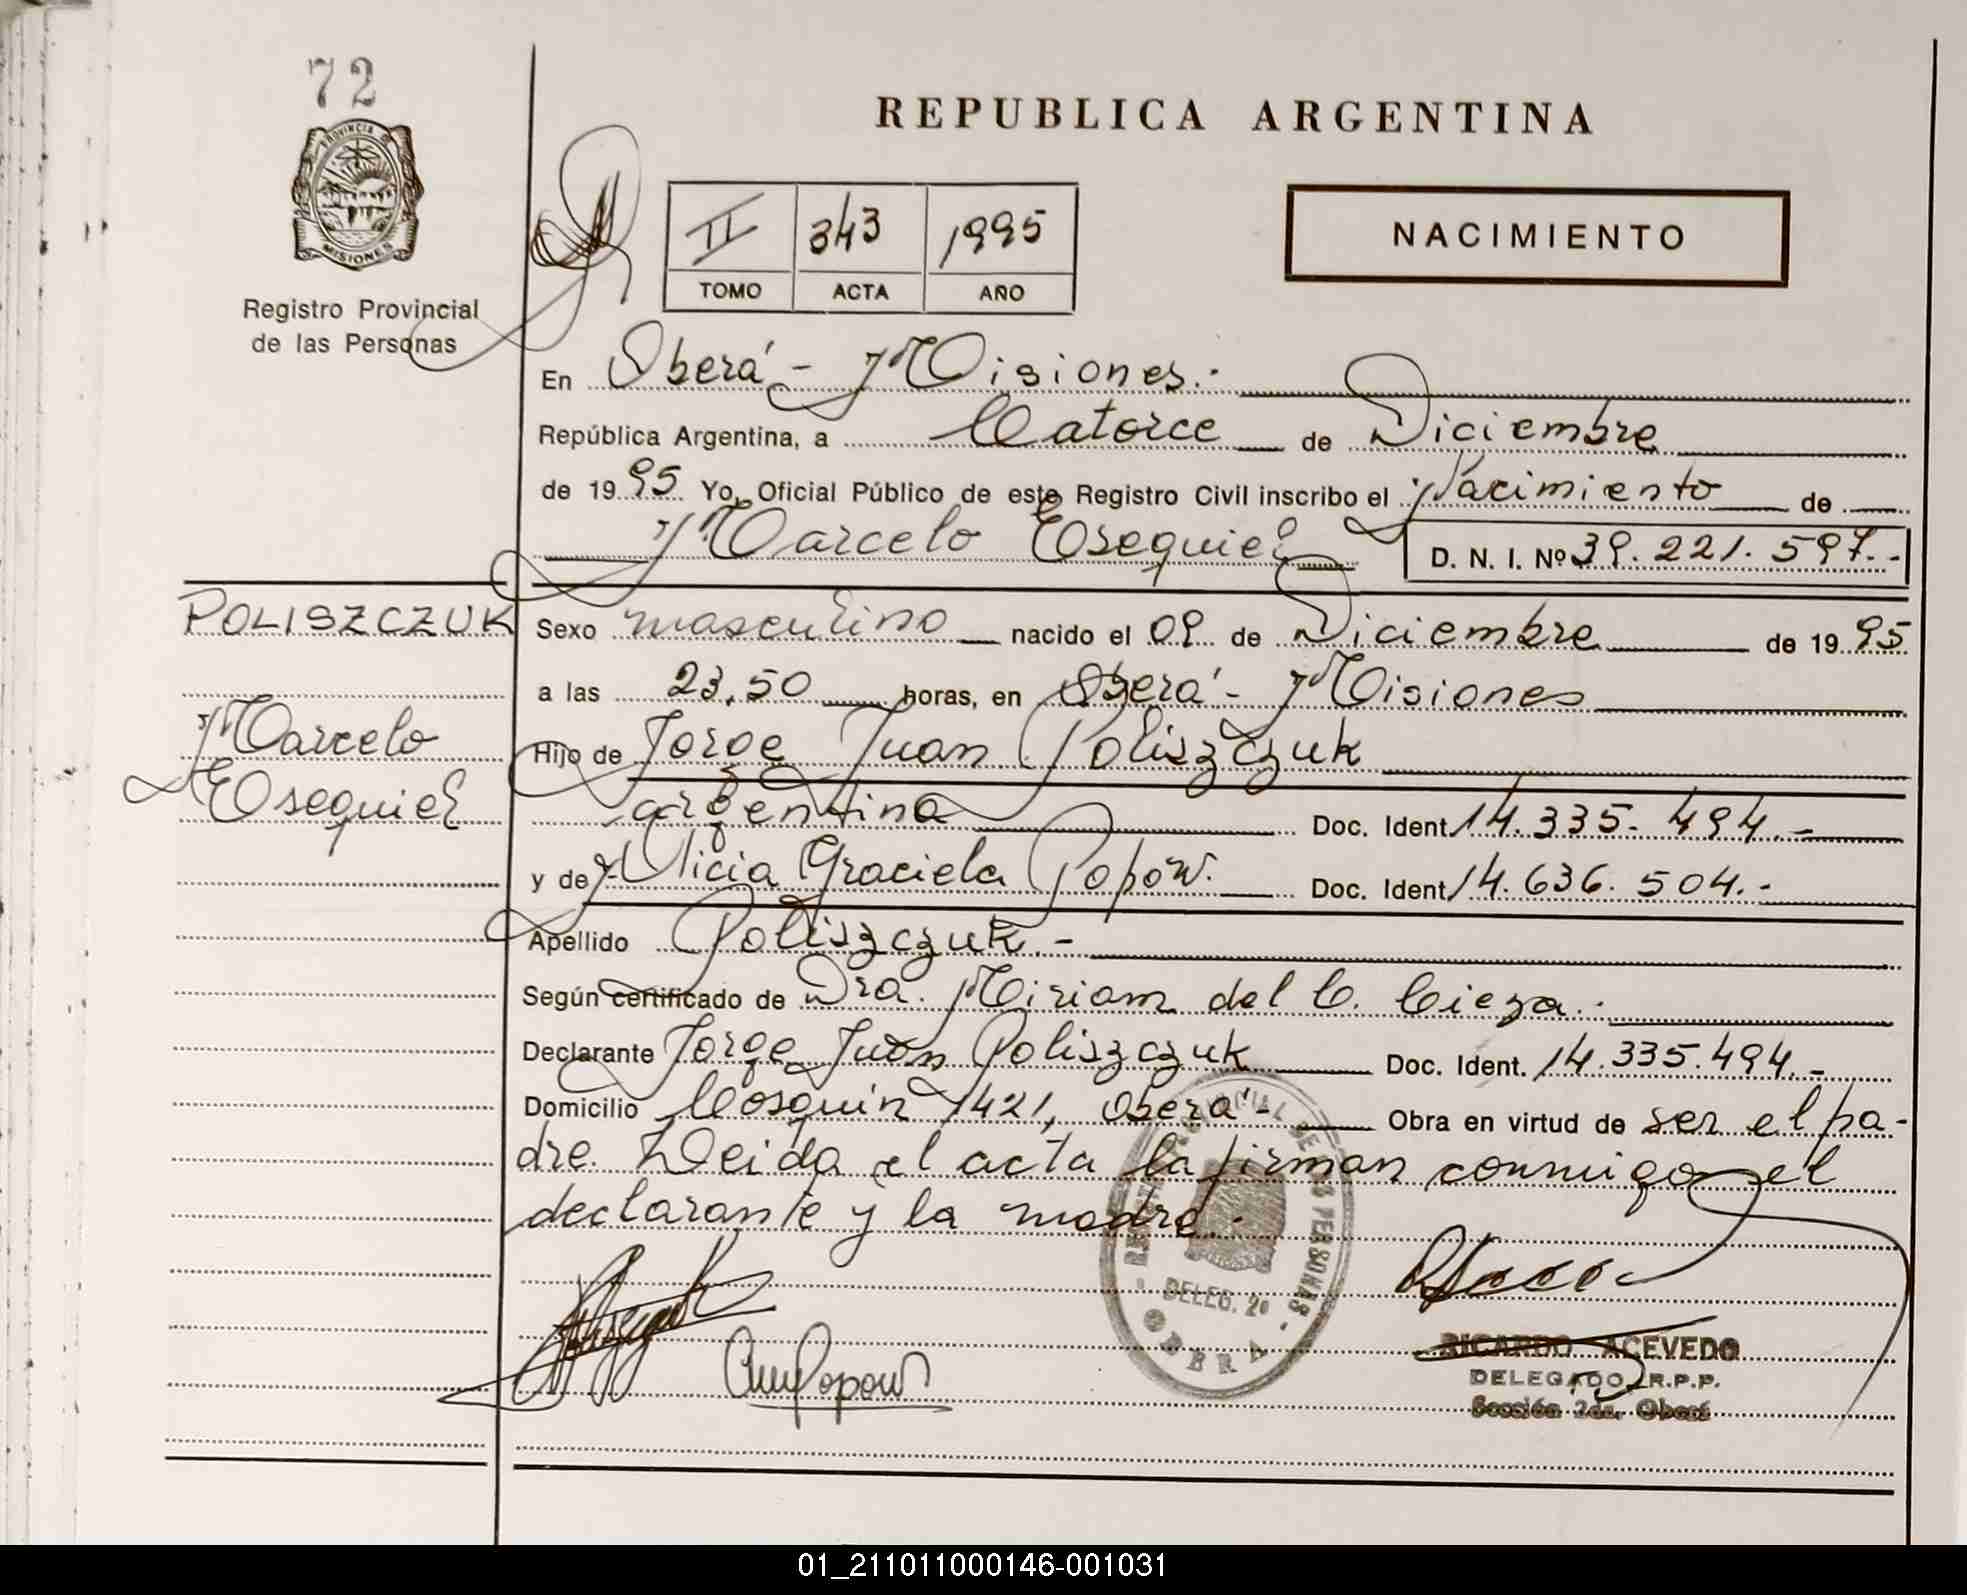 72
PROVINCIA DE
MISIONES
Registro Provincial
de las Personas
REPUBLICA ARGENTINA
II 343 1995
TOMO ACTA AÑO
NACIMIENTO
En Oberá - Misiones.-
República Argentina, a Catorce de Diciembre
de 1995 Yo, Oficial Público de este Registro Civil inscribo el Nacimiento de
Marcelo Esequiel D. N. I. Nº 39.221.597.-
POLISZCZUK
Marcelo
Esequiel
Sexo masculino nacido el 09 de Diciembre de 1995
a las 23,50 horas, en Oberá - Misiones
Hijo de Jorge Juan Poliszczuk
argentina Doc. Ident 14.335.494.-
y de Alicia Graciela Popow. Doc. Ident 14.636.504.-
Apellido Poliszczuk.-
Según certificado de Dra. Miriam del C. Cieza.
Declarante Jorge Juan Poliszczuk Doc. Ident. 14.335.494.-
Domicilio Cosquin 1421, Oberá - Obra en virtud de ser el pa-
dre. Leida el acta la firman conmigo el
declarante y la madre.-
Popow
DELEG. 2ª
OBERA
RICARDO ACEVEDO
DELEGADO R.P.P.
Sección 2da. Oberá
01_211011000146-001031